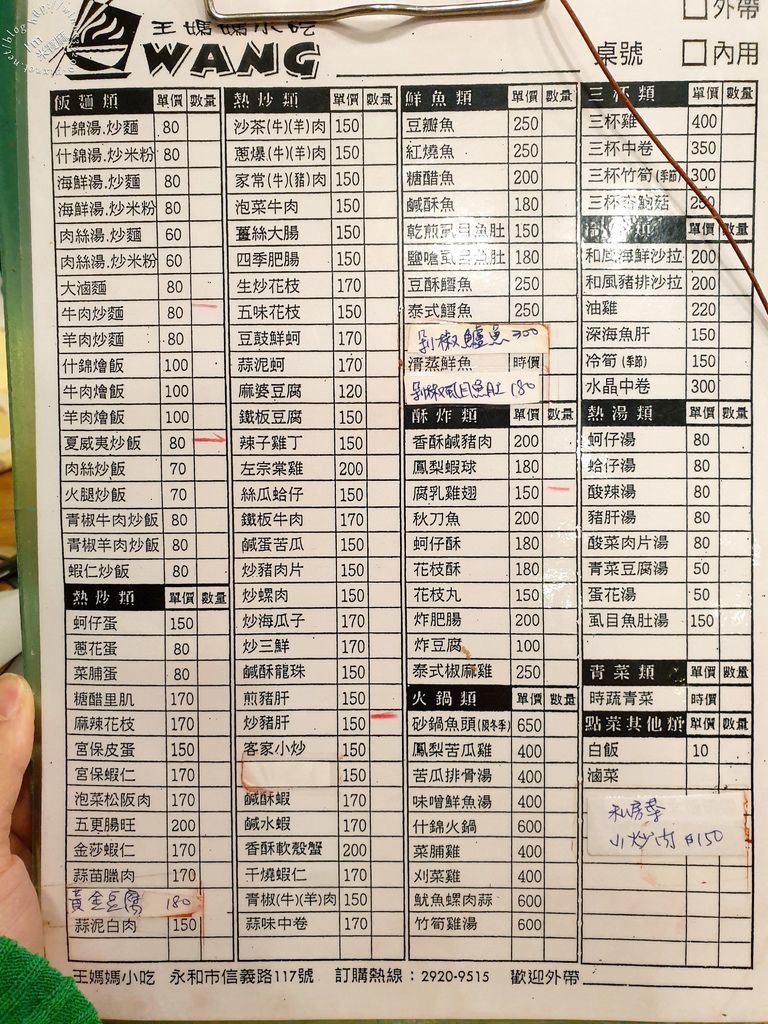 王媽媽小吃
WANG
桌號
□外帶
□內用
飯麵類 單價 數量
什錦湯.炒麵 80
什錦湯.炒米粉 80
海鮮湯.炒麵 80
海鮮湯.炒米粉 80
肉絲湯.炒麵 60
肉絲湯.炒米粉 60
大滷麵 80
牛肉炒麵 80
羊肉炒麵 80
什錦燴飯 100
牛肉燴飯 100
羊肉燴飯 100
夏威夷炒飯 80
肉絲炒飯 70
火腿炒飯 70
青椒牛肉炒飯 80
青椒羊肉炒飯 80
蝦仁炒飯 80
熱炒類 單價 數量
蚵仔蛋 150
蔥花蛋 80
菜脯蛋 80
糖醋里肌 170
麻辣花枝 170
宮保皮蛋 150
宮保蝦仁 170
泡菜松阪肉 170
五更腸旺 200
金莎蝦仁 170
蒜苗臘肉 170
黃金豆腐 180
蒜泥白肉 150
熱炒類 單價 數量
沙茶(牛)(羊)肉 150
蔥爆(牛)(羊)肉 150
家常(牛)(豬)肉 150
泡菜牛肉 150
薑絲大腸 150
四季肥腸 150
生炒花枝 170
五味花枝 150
豆鼓鮮蚵 170
蒜泥蚵 170
麻婆豆腐 120
鐵板豆腐 150
辣子雞丁 150
左宗棠雞 200
絲瓜蛤仔 150
鐵板牛肉 170
鹹蛋苦瓜 150
炒豬肉片 150
炒螺肉 150
炒海瓜子 170
炒三鮮 170
鹹酥龍珠 150
煎豬肝 150
炒豬肝 150
客家小炒 150
150
鹹酥蝦 170
鹹水蝦 170
香酥軟殼蟹 200
干燒蝦仁 170
青椒(牛)(羊)肉 150
蒜味中卷 170
鮮魚類 單價 數量
豆瓣魚 250
紅燒魚 250
糖醋魚 200
鹹酥魚 180
乾煎虱目魚肚 150
鹽嗆虱目魚肚 180
豆酥鱈魚 250
泰式鱈魚 250
剁椒鱸魚 300
清蒸鮮魚 時價
剁椒虱目魚肚 180
酥炸類 單價 數量
香酥鹹豬肉 200
鳳梨蝦球 180
腐乳雞翅 150
秋刀魚 200
蚵仔酥 180
花枝酥 180
花枝丸 150
炸肥腸 200
炸豆腐 100
泰式椒麻雞 250
火鍋類 單價 數量
砂鍋魚頭(限冬季) 650
鳳梨苦瓜雞 400
苦瓜排骨湯 400
味噌鮮魚湯 400
什錦火鍋 600
菜脯雞 400
刈菜雞 400
魷魚螺肉蒜 600
竹筍雞湯 600
三杯類 單價 數量
三杯雞 400
三杯中卷 350
三杯竹筍(季節) 300
三杯杏鮑菇 250
單價 數量
和風海鮮沙拉 200
和風豬排沙拉 200
油雞 220
深海魚肝 150
冷筍(季節) 150
水晶中卷 300
熱湯類 單價 數量
蚵仔湯 80
蛤仔湯 80
酸辣湯 80
豬肝湯 80
酸菜肉片湯 80
青菜豆腐湯 50
蛋花湯 50
虱目魚肚湯 150
青菜類 單價 數量
時蔬青菜 時價
點菜其他類 單價 數量
白飯 10
滷菜
私房菜
小炒肉 $150
王媽媽小吃 永和市信義路117號 訂購熱線：2920-9515 歡迎外帶